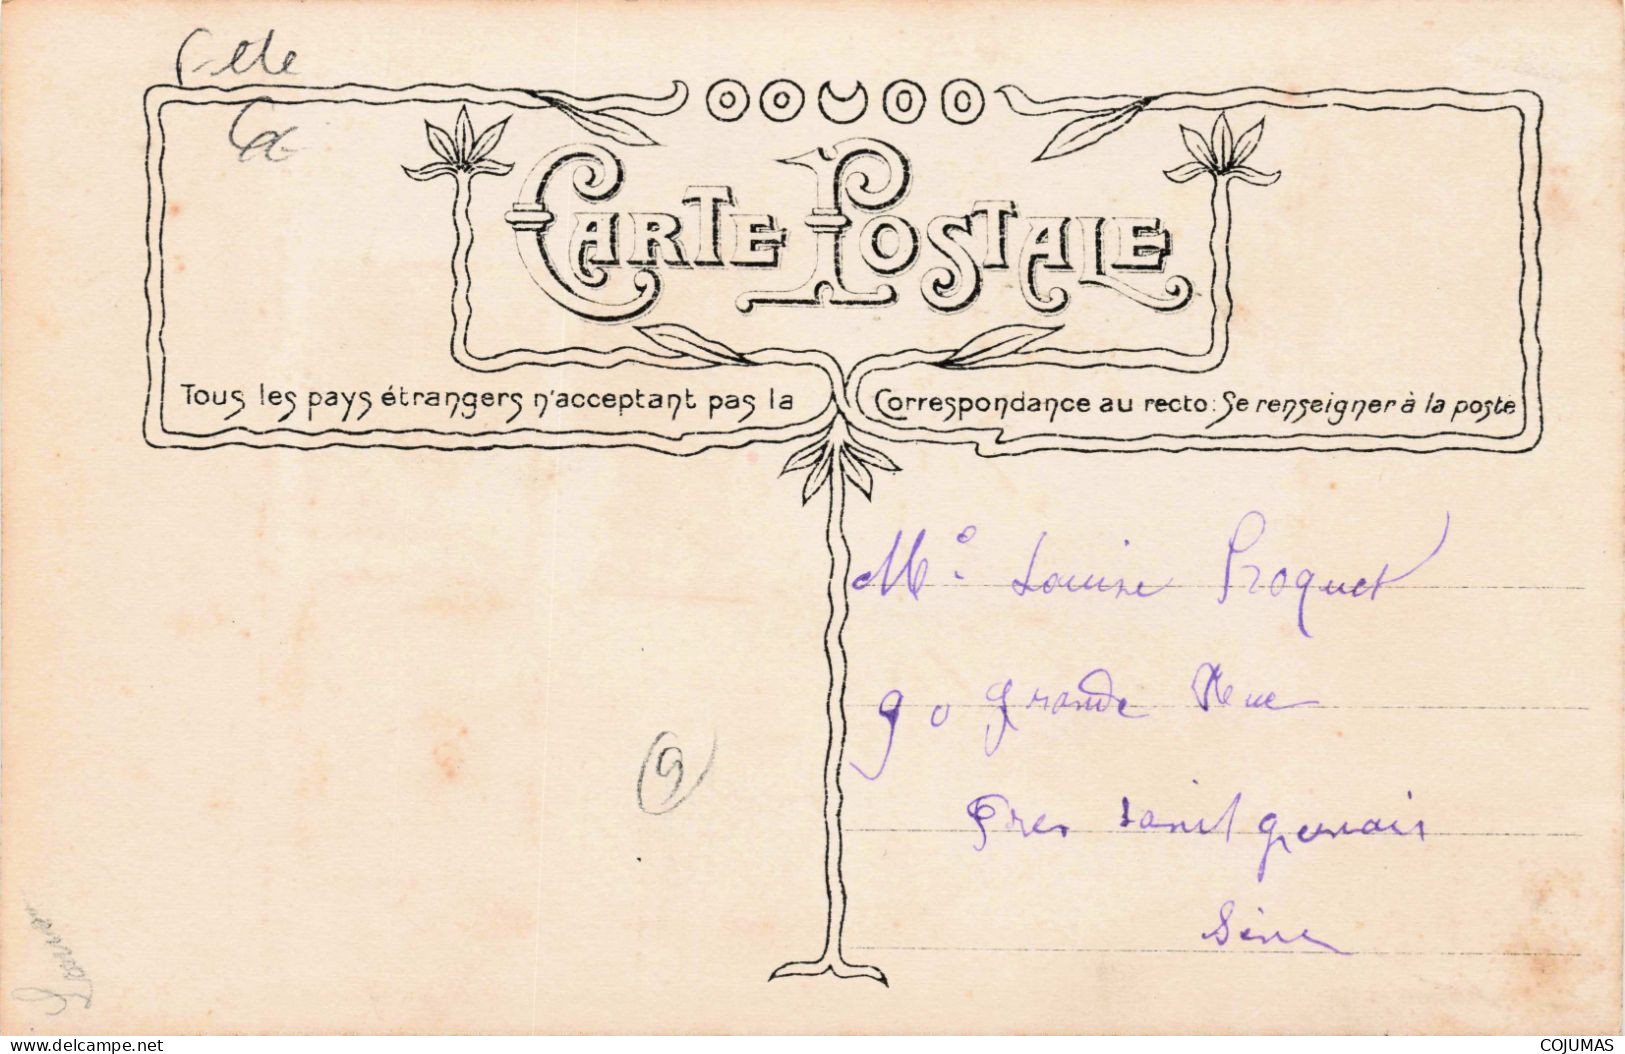 Fête
CARTE POSTALE
Tous les pays étrangers n'acceptant pas la Correspondance au recto: Se renseigner à la poste
Me. Louise Proquet
90 grande Rue
Pres saint gervais
Seine
9
delcampe.net
COJUMAS